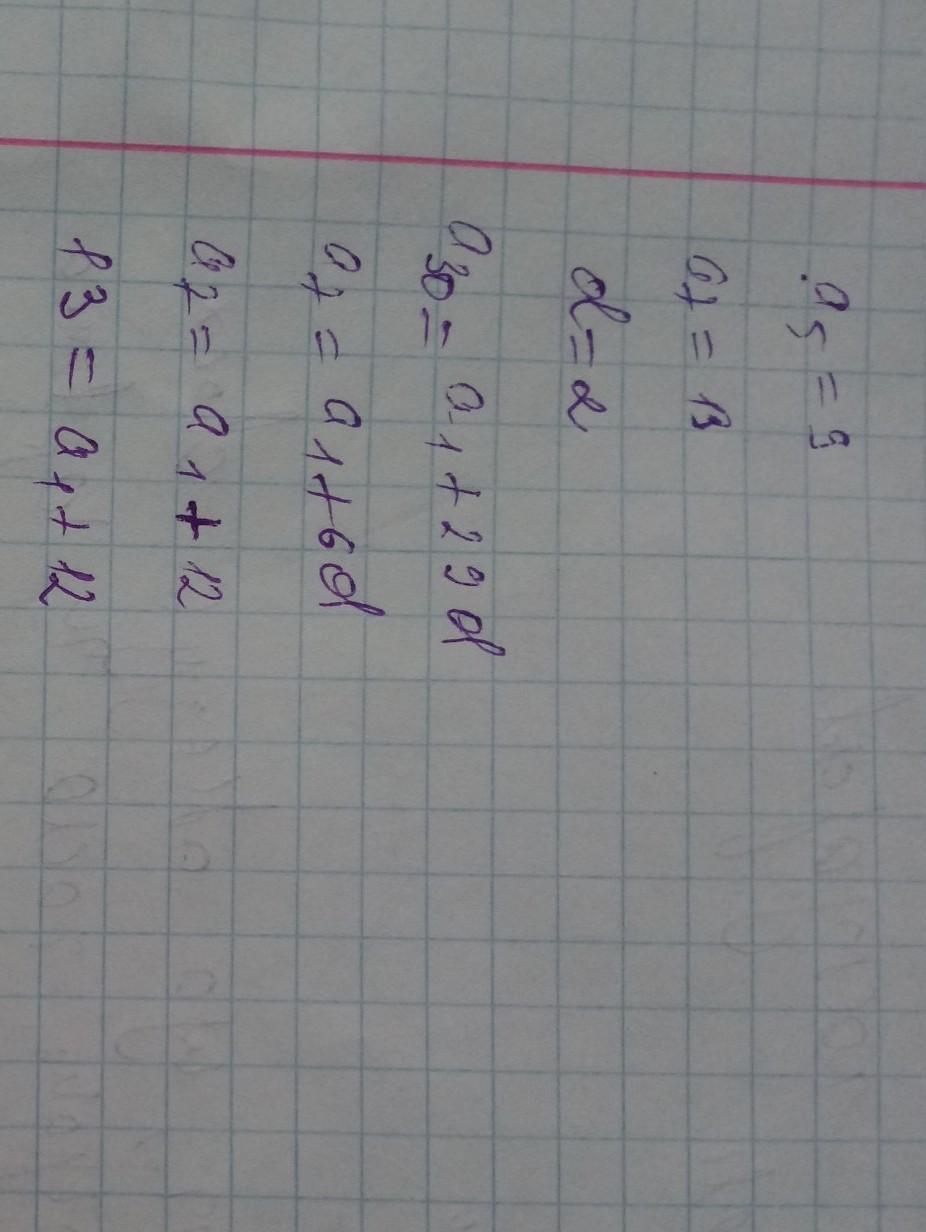 a5 = 9
a7 = 13
d = 2
a30 = a1 + 29d
a7 = a1 + 6d
a7 = a1 + 12
13 = a1 + 12